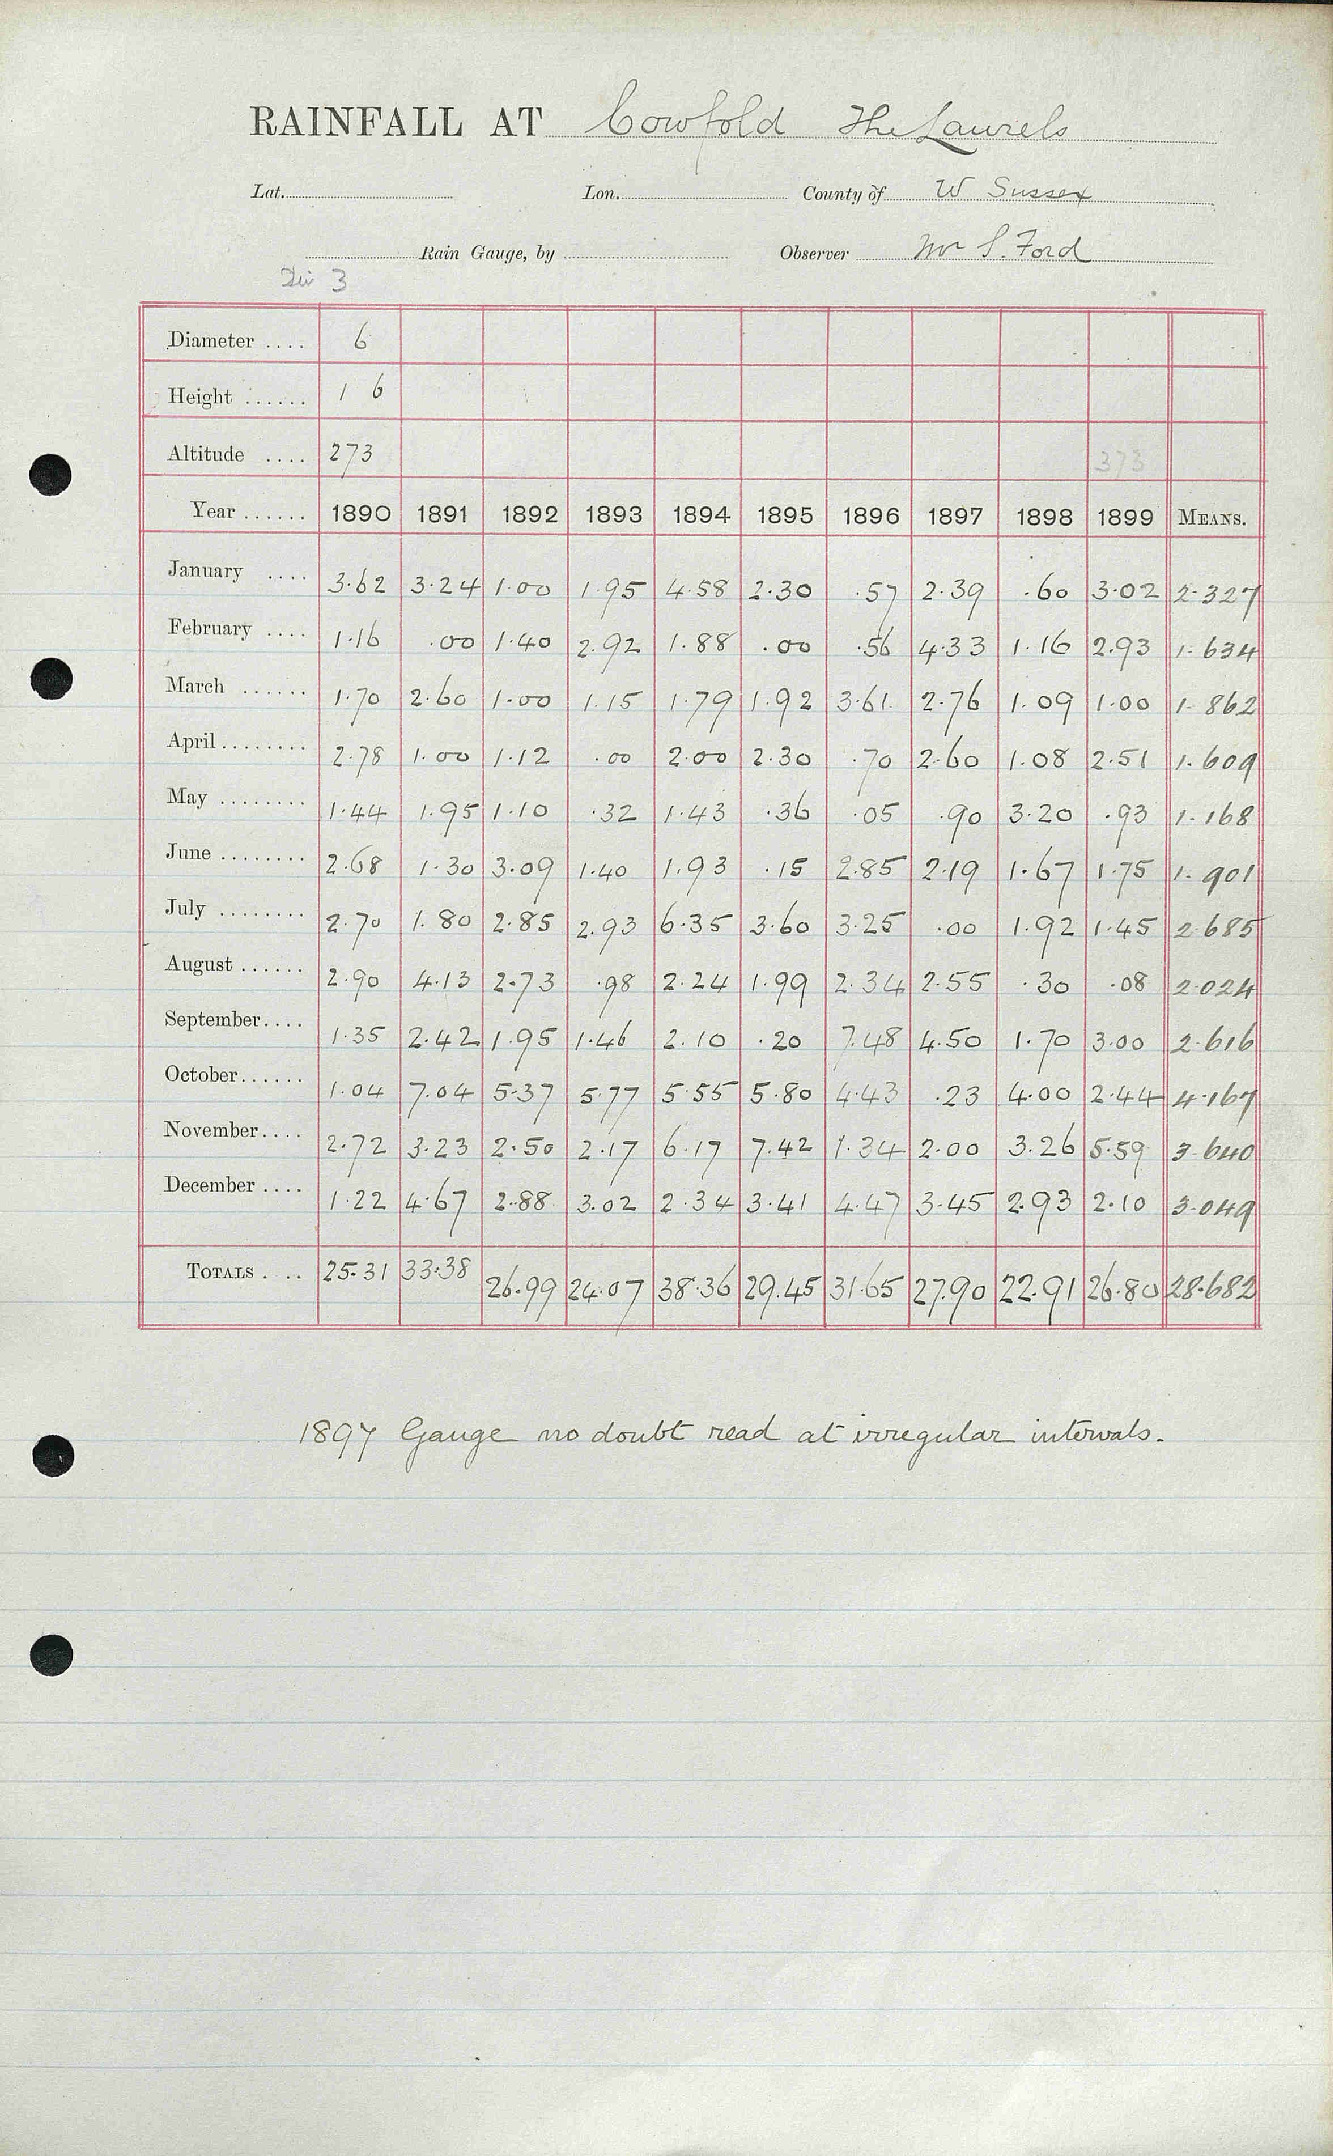 RAINFALL AT Cowfold The Laurels
Lat. Lon. County of W Sussex
Rain Gauge, by Observer Mr S. Ford
Div 3
Diameter .... 6
Height ...... 1 6
Altitude .... 273 373
Year ...... 1890 1891 1892 1893 1894 1895 1896 1897 1898 1899 MEANS.
January .... 3.62 3.24 1.00 1.95 4.58 2.30 .57 2.39 .60 3.02 2.327
February .... 1.16 .00 1.40 2.92 1.88 .00 .56 4.33 1.16 2.93 1.634
March ...... 1.70 2.60 1.00 1.15 1.79 1.92 3.61 2.76 1.09 1.00 1.862
April ........ 2.78 1.00 1.12 .00 2.00 2.30 .70 2.60 1.08 2.51 1.609
May ........ 1.44 1.95 1.10 .32 1.43 .36 .05 .90 3.20 .93 1.168
June ........ 2.68 1.30 3.09 1.40 1.93 .15 2.85 2.19 1.67 1.75 1.901
July ........ 2.70 1.80 2.85 2.93 6.35 3.60 3.25 .00 1.92 1.45 2.685
August ...... 2.90 4.13 2.73 .98 2.24 1.99 2.34 2.55 .30 .08 2.024
September.... 1.35 2.42 1.95 1.46 2.10 .20 7.48 4.50 1.70 3.00 2.616
October...... 1.04 7.04 5.37 5.77 5.55 5.80 4.43 .23 4.00 2.44 4.167
November.... 2.72 3.23 2.50 2.17 6.17 7.42 1.34 2.00 3.26 5.59 3.640
December .... 1.22 4.67 2.88 3.02 2.34 3.41 4.47 3.45 2.93 2.10 3.049
TOTALS .... 25.31 33.38 26.99 24.07 38.36 29.45 31.65 27.90 22.91 26.80 28.682
1897 Gauge no doubt read at irregular intervals.